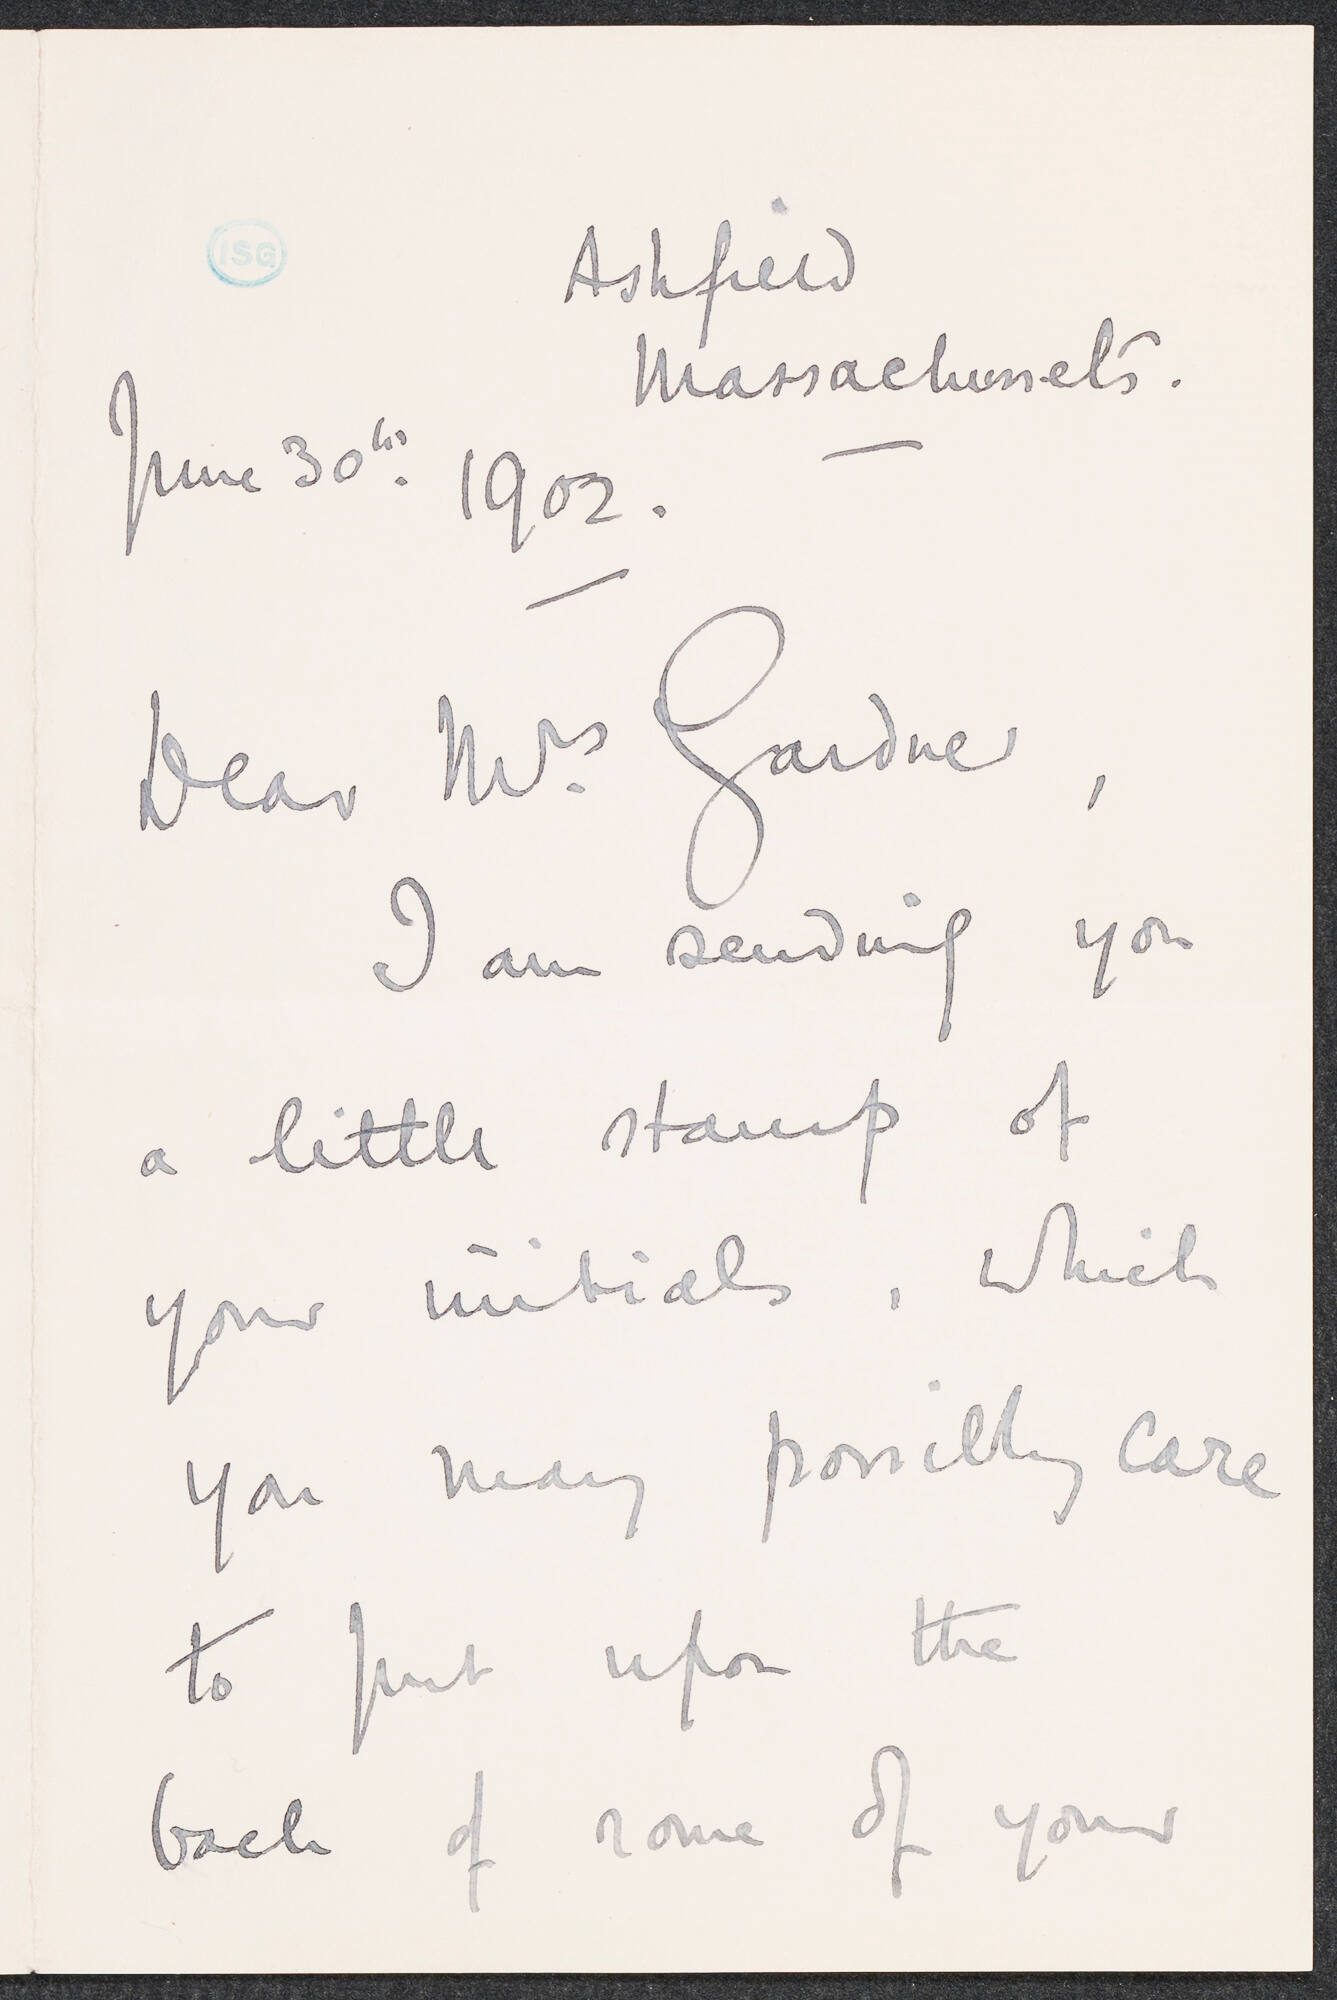 ISG
Ashfield
Massachussets.
June 30th. 1902.
Dear Mrs. Gardner,
I am sending you
a little stamp of
your initials, which
you may possibly care
to put upon the
back of some of your